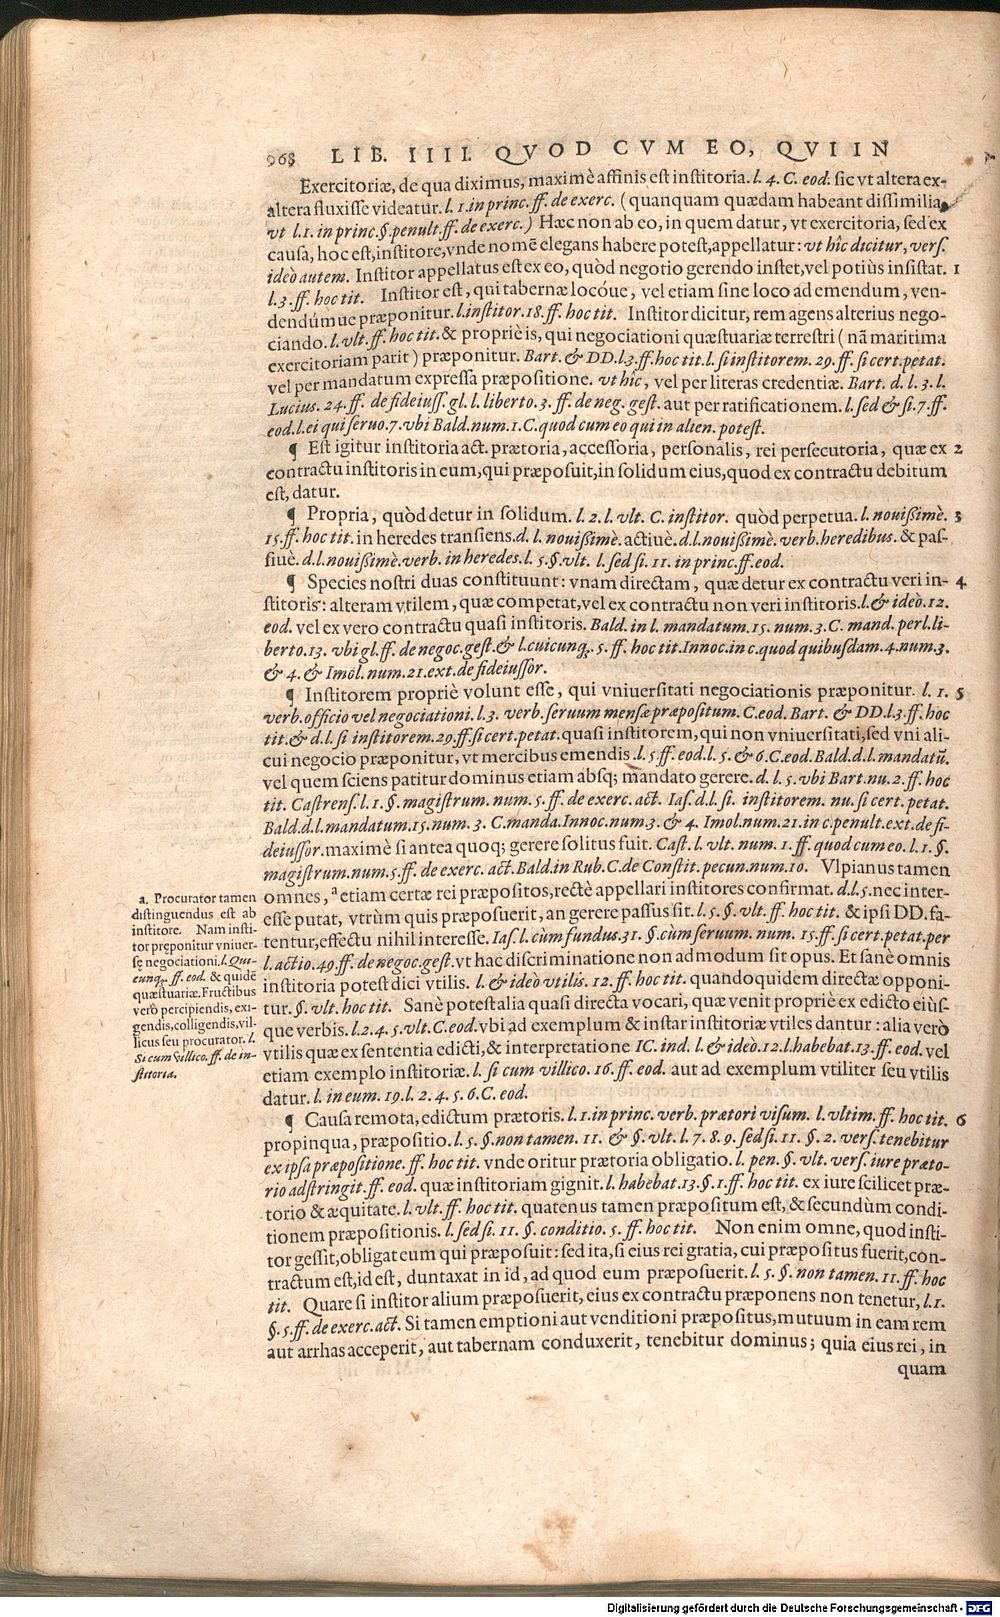 968 LIB. IIII. QVOD CVM EO, QVI IN
Exercitoriæ, de qua diximus, maximè affinis est institoria. l. 4. C. eod. sic vt altera ex-
altera fluxisse videatur. l. 1. in princ. ff. de exerc. (quanquam quædam habeant dissimilia,
vt l.1. in princ. §. penult. ff. de exerc.) Hæc non ab eo, in quem datur, vt exercitoria, sed ex
causa, hoc est, institore, vnde nomē elegans habere potest, appellatur: vt hîc dicitur, vers.
ideò autem. Institor appellatus est ex eo, quòd negotio gerendo instet, vel potiùs insistat. 1
l.3. ff. hoc tit. Institor est, qui tabernæ locóue, vel etiam sine loco ad emendum, ven-
dendúmue præponitur. l. institor. 18. ff. hoc tit. Institor dicitur, rem agens alterius nego-
ciando. l. vlt. ff. hoc tit. & propriè is, qui negociationi quæstuariæ terrestri (nā maritima
exercitoriam parit) præponitur. Bart. & DD. l.3. ff. hoc tit. l. si institorem. 29. ff. si cert. petat.
vel per mandatum expressa præpositione. vt hîc, vel per literas credentiæ. Bart. d. l. 3. l.
Lucius. 24. ff. de fideiuss. gl. l. liberto. 3. ff. de neg. gest. aut per ratificationem. l. sed & si. 7. ff.
eod. l. ei qui seruo. 7. vbi Bald. num. 1. C. quod cum eo qui in alien. potest.
¶ Est igitur institoria act. prætoria, accessoria, personalis, rei persecutoria, quæ ex 2
contractu institoris in eum, qui præposuit, in solidum eius, quod ex contractu debitum
est, datur.
¶ Propria, quòd detur in solidum. l. 2. l. vlt. C. institor. quòd perpetua. l. nouißimè. 3
15. ff. hoc tit. in heredes transiens. d. l. nouißimè. actiuè. d. l. nouißimè. verb. heredibus. & pas-
siuè. d. l. nouißimè. verb. in heredes. l. 5. §. vlt. l. sed si. 11. in princ. ff. eod.
¶ Species nostri duas constituunt: vnam directam, quæ detur ex contractu veri in- 4
stitoris: alteram vtilem, quæ competat, vel ex contractu non veri institoris. l. & ideò. 12.
eod. vel ex vero contractu quasi institoris. Bald. in l. mandatum. 15. num. 3. C. mand. per l. li-
berto. 13. vbi gl. ff. de negoc. gest. & l. cuicunq;. 5. ff. hoc tit. Innoc. in c. quod quibusdam. 4. num. 3.
& 4. & Imol. num. 21. ext. de fideiussor.
¶ Institorem propriè volunt esse, qui vniuersitati negociationis præponitur. l. 1. 5
verb. officio vel negociationi. l.3. verb. seruum mensæ præpositum. C. eod. Bart. & DD. l.3. ff. hoc
tit. & d. l. si institorem. 29. ff. si cert. petat. quasi institorem, qui non vniuersitati, sed vni ali-
cui negocio præponitur, vt mercibus emendis. l. 5. ff. eod. l. 5. & 6. C. eod. Bald. d. l. mandatū.
vel quem sciens patitur dominus etiam absq; mandato gerere. d. l. 5. vbi Bart. nu. 2. ff. hoc
tit. Castrens. l. 1. §. magistrum. num. 5. ff. de exerc. act. Ias. d. l. si. institorem. nu. si cert. petat.
Bald. d. l. mandatum. 15. num. 3. C. manda. Innoc. num. 3. & 4. Imol. num. 21. in c. penult. ext. de fi-
deiussor. maximè si antea quoq; gerere solitus fuit. Cast. l. vlt. num. 1. ff. quod cum eo. l. 1. §.
magistrum. num. 5. ff. de exerc. act. Bald. in Rub. C. de Constit. pecun. num. 10. Vlpianus tamen
omnes, a etiam certæ rei præpositos, rectè appellari institores confirmat. d. l. 5. nec inter-
esse putat, vtrùm quis præposuerit, an gerere passus sit. l. 5. §. vlt. ff. hoc tit. & ipsi DD. fa-
tentur, effectu nihil interesse. Ias. l. cùm fundus. 31. §. cùm seruum. num. 15. ff. si cert. petat. per
l. actio. 49. ff. de negoc. gest. vt hac discriminatione non admodum sit opus. Et sanè omnis
institoria potest dici vtilis. l. & ideò vtilis. 12. ff. hoc tit. quandoquidem directæ opponi-
tur. §. vlt. hoc tit. Sanè potest alia quasi directa vocari, quæ venit propriè ex edicto eiús-
que verbis. l. 2. 4. 5. vlt. C. eod. vbi ad exemplum & instar institoriæ vtiles dantur: alia verò
vtilis quæ ex sententia edicti, & interpretatione IC. ind. l. & ideò. 12. l. habebat. 13. ff. eod. vel
etiam exemplo institoriæ. l. si cum villico. 16. ff. eod. aut ad exemplum vtiliter seu vtilis
datur. l. in eum. 19. l. 2. 4. 5. 6. C. eod.
a. Procurator tamen
distinguendus est ab
institore. Nam insti-
tor preponitur vniuer-
sę negociationi. l. Qui-
cunq;. ff. eod. & quidē
quæstuariæ. Fructibus
verò percipiendis, exi-
gendis, colligendis, vil-
licus seu procurator. l.
Si cum villico. ff. de in-
stitoria.
¶ Causa remota, edictum prætoris. l. 1. in princ. verb. prætori visum. l. vltim. ff. hoc tit. 6
propinqua, præpositio. l. 5. §. non tamen. 11. & §. vlt. l. 7. 8. 9. sed si. 11. §. 2. vers. tenebitur
ex ipsa præpositione. ff. hoc tit. vnde oritur prætoria obligatio. l. pen. §. vlt. vers. iure præto-
rio adstringit. ff. eod. quæ institoriam gignit. l. habebat. 13. §. 1. ff. hoc tit. ex iure scilicet præ-
torio & æquitate. l. vlt. ff. hoc tit. quatenus tamen præpositum est, & secundùm condi-
tionem præpositionis. l. sed si. 11. §. conditio. 5. ff. hoc tit. Non enim omne, quod insti-
tor gessit, obligat eum qui præposuit: sed ita, si eius rei gratia, cui præpositus fuerit, con-
tractum est, id est, duntaxat in id, ad quod eum præposuerit. l. 5. §. non tamen. 11. ff. hoc
tit. Quare si institor alium præposuerit, eius ex contractu præponens non tenetur, l. 1.
§. 5. ff. de exerc. act. Si tamen emptioni aut venditioni præpositus, mutuum in eam rem
aut arrhas acceperit, aut tabernam conduxerit, tenebitur dominus; quia eius rei, in
quam
Digitalisierung gefördert durch die Deutsche Forschungsgemeinschaft - DFG